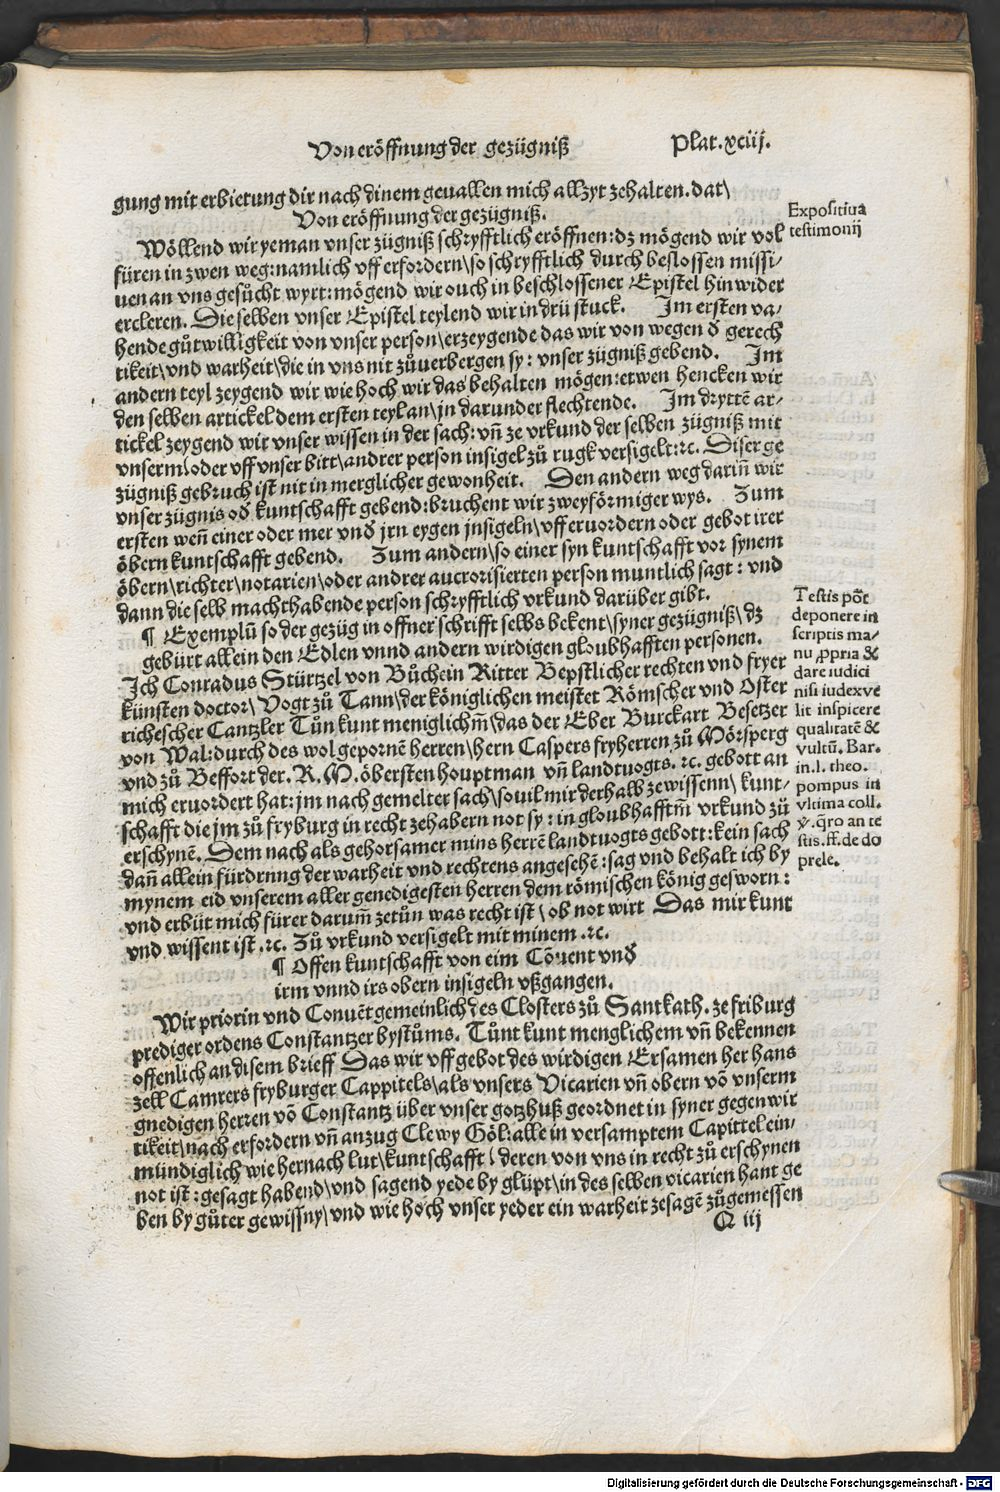 Von eröffnung der gezügniß
Plat. xciij.
gung mit erbietung dir nach dinem geuallen mich allzyt zehalten. dat\
Von eröffnung der gezügniß.
Wöllend wir yeman vnser zügniß schryfftlich eröffnen: dz mögend wir vol
füren in zwen weg: namlich vff erfordern\ so schryfftlich durch beslossen missi/
uen an vns gesůcht wyrt: mögend wir ouch in beschlossener Epistel hinwider
ercleren. Die selben vnser Epistel teylend wir in drü stuck. Im ersten va/
hende gůtwilligkeit von vnser person\ erzeygende das wir von wegen đ gerech
tikeit\ vnd warheit\ die in vns nit zůuerbergen sy: vnser zügniß gebend. Im
andern teyl zeygend wir wie hoch wir das behalten mögen: etwen hencken wir
den selben artickel dem ersten teyl an\ jn darunder flechtende. Im dryttē ar/
tickel zeygend wir vnser wissen in der sach: vñ ze vrkund der selben zügniß mit
vnserm\ oder vff vnser bitt\ andrer person insigel zů rugk versigelt: ꝛc. Diser ge
zügniß gebruch ist nit in merglicher gewonheit. Den andern weg dariñ wir
vnser zügnis ođ kuntschafft gebend: bruchent wir zweyförmiger wys. Zum
ersten weñ einer oder mer vnđ jrn eygen jnsigeln\ vff eruordern oder gebot irer
öbern kuntschafft gebend. Zum andern\ so einer syn kuntschafft vor synem
öbern\ richter\ notarien\ oder andrer auctorisierten person muntlich sagt: vnd
dann die selb machthabende person schryfftlich vrkund darüber gibt.
¶ Exemplū so der gezüg in offner schrifft selbs bekent\ syner gezügniß\ dz
gebürt allein den Edlen vnnd andern wirdigen gloubhafften personen.
Ich Conradus Stürtzel von Bůchein Ritter Bepstlicher rechten vnd fryer
künsten doctor\ Vogt zů Tann\ der königlichen meistet Römscher vnd Oster
richescher Cantzler Tůn kunt meniglichm̄\ das der Eber Burckart Besetzer
von Wal: durch des wol gepornē herren\ hern Caspers fryherren zů Mörsperg
vnd zů Beffort der. R. M. öbersten houptman vñ landtuogts. ꝛc. gebott an
mich eruordert hat: jm nach gemelter sach\ souil mir derhalb ze wissenn\ kunt/
schafft die jm zů fryburg in recht zehabern not sy: in gloubhafftm̄ vrkund zů
erschynē. Dem nach als gehorsamer mins herrē landtuogts gebott: kein sach
dañ allein fürdrung der warheit vnd rechtens angesehē: sag vnd behalt ich by
mynem eid vnserem aller genedigesten herren dem römischen könig gesworn:
vnd erbüt mich fürer darum̄ zetůn was recht ist\ ob not wirt Das mir kunt
vnd wissent ist. ꝛc. Zů vrkund versigelt mit minem. ꝛc.
¶ Offen kuntschafft von eim Cōuent vnđ
irm vnnd irs obern insigeln vßgangen.
Wir priorin vnd Conuēt gemeinlich des Closters zů Sant kath. ze friburg
prediger ordens Constantzer bystůms. Tůnt kunt menglichem vñ bekennen
offenlich an disem brieff Das wir vff gebot des wirdigen Ersamen her hans
zell Camrers fryburger Cappitels\ als vnsers Vicarien vñ obern vō vnserm
gnedigen herren vō Constantz über vnser gotzhuß geordnet in syner gegenwir
tikeit\ nach erfordern vñ anzug Clewy Göl: alle in versamptem Capittel ein/
mündiglich wie hernach lut\ kuntschafft\ deren von vns in recht zů erschynen
not ist: gesagt habend\ vnd sagend yede by glüpt\ in des selben vicarien hant ge
ben by gůter gewissny\ vnd wie hoch vnser yeder ein warheit zesagē zůgemessen
Q iij
Expositiua
testimonij
Testis pōt
deponere in
scriptis ma/
nu ꝓpria &
dare iudici
nisi iudex ve
lit inspicere
qualitatē &
vultū. Bar.
in. l. theo.
pompus in
vltima coll.
ꝟ. q̄ro an te
stis. ff. de do
prele.
Digitalisierung gefördert durch die Deutsche Forschungsgemeinschaft - DFG